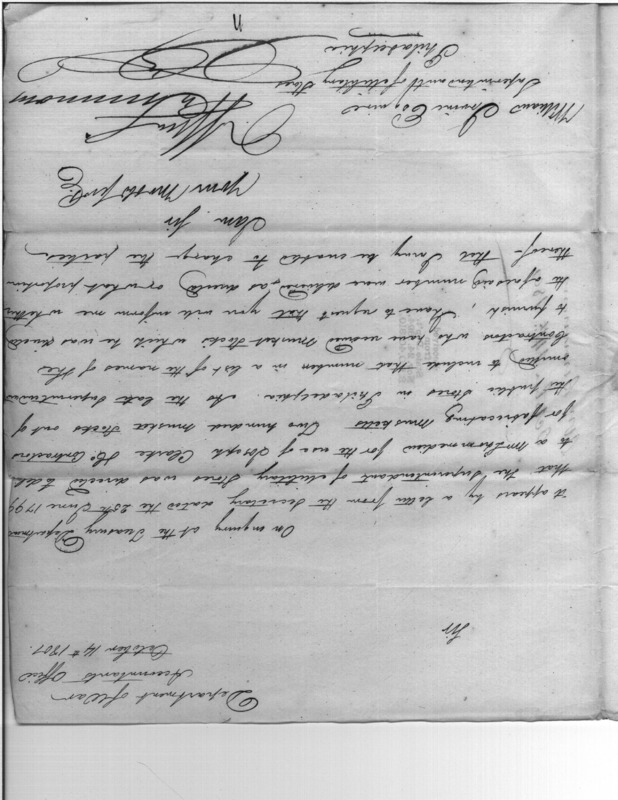 Department of War
Accountants Office
October 14th 1801.
Sir
On enquiry at the Treasury Department
it appears by a letter from the Secretary dated the 25th June 1799
that the Superintendant of Military Stores was directed to deliver
to a Mr. for the use of Joseph Clarke & Co Contractors
for fabricating Muskets Two hundred musket stocks out of
the public Stores in Philadelphia. As the late Superintendant
omitted to include that number in a list of the names of the
Contractors who have received Musket stocks which he was directed
to furnish, I have to request that you will inform me whether
the aforesaid number were delivered, as directed, or what proportion
thereof— that I may be enabled to charge the parties.
I am Sir
your most ob. S.
W Simmons
William Irvine Esquire
Superintendant of Military Stores
Philadelphia